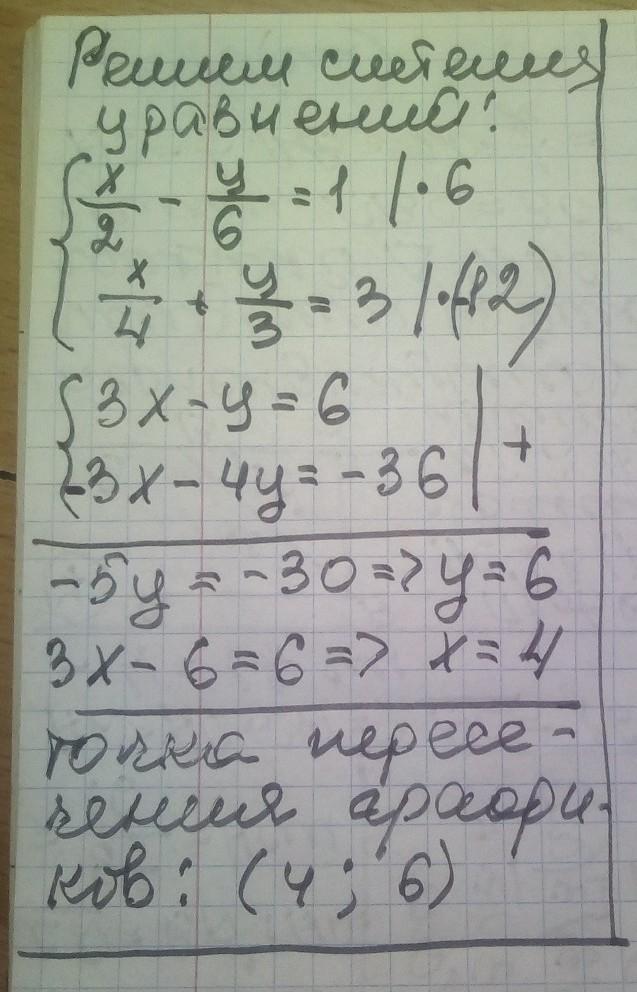 Решим систему
уравнений:
{ x/2 - y/6 = 1 |·6
x/4 + y/3 = 3 |·(-12)
{ 3x - y = 6
-3x - 4y = -36 | +
-5y = -30 => y = 6
3x - 6 = 6 => x = 4
точка пересе-
чения графи-
ков: (4; 6)